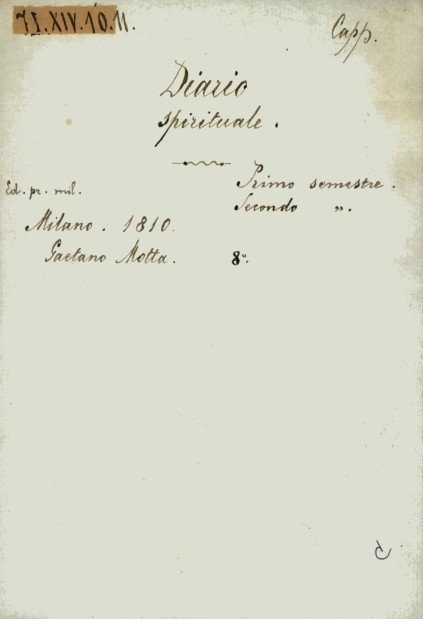 71.XIV.10.11.
Capp.
Diario
spirituale.
Primo semestre.
Ed. pr. mil.
Secondo „.
Milano. 1810.
Gaetano Motta. 8°.